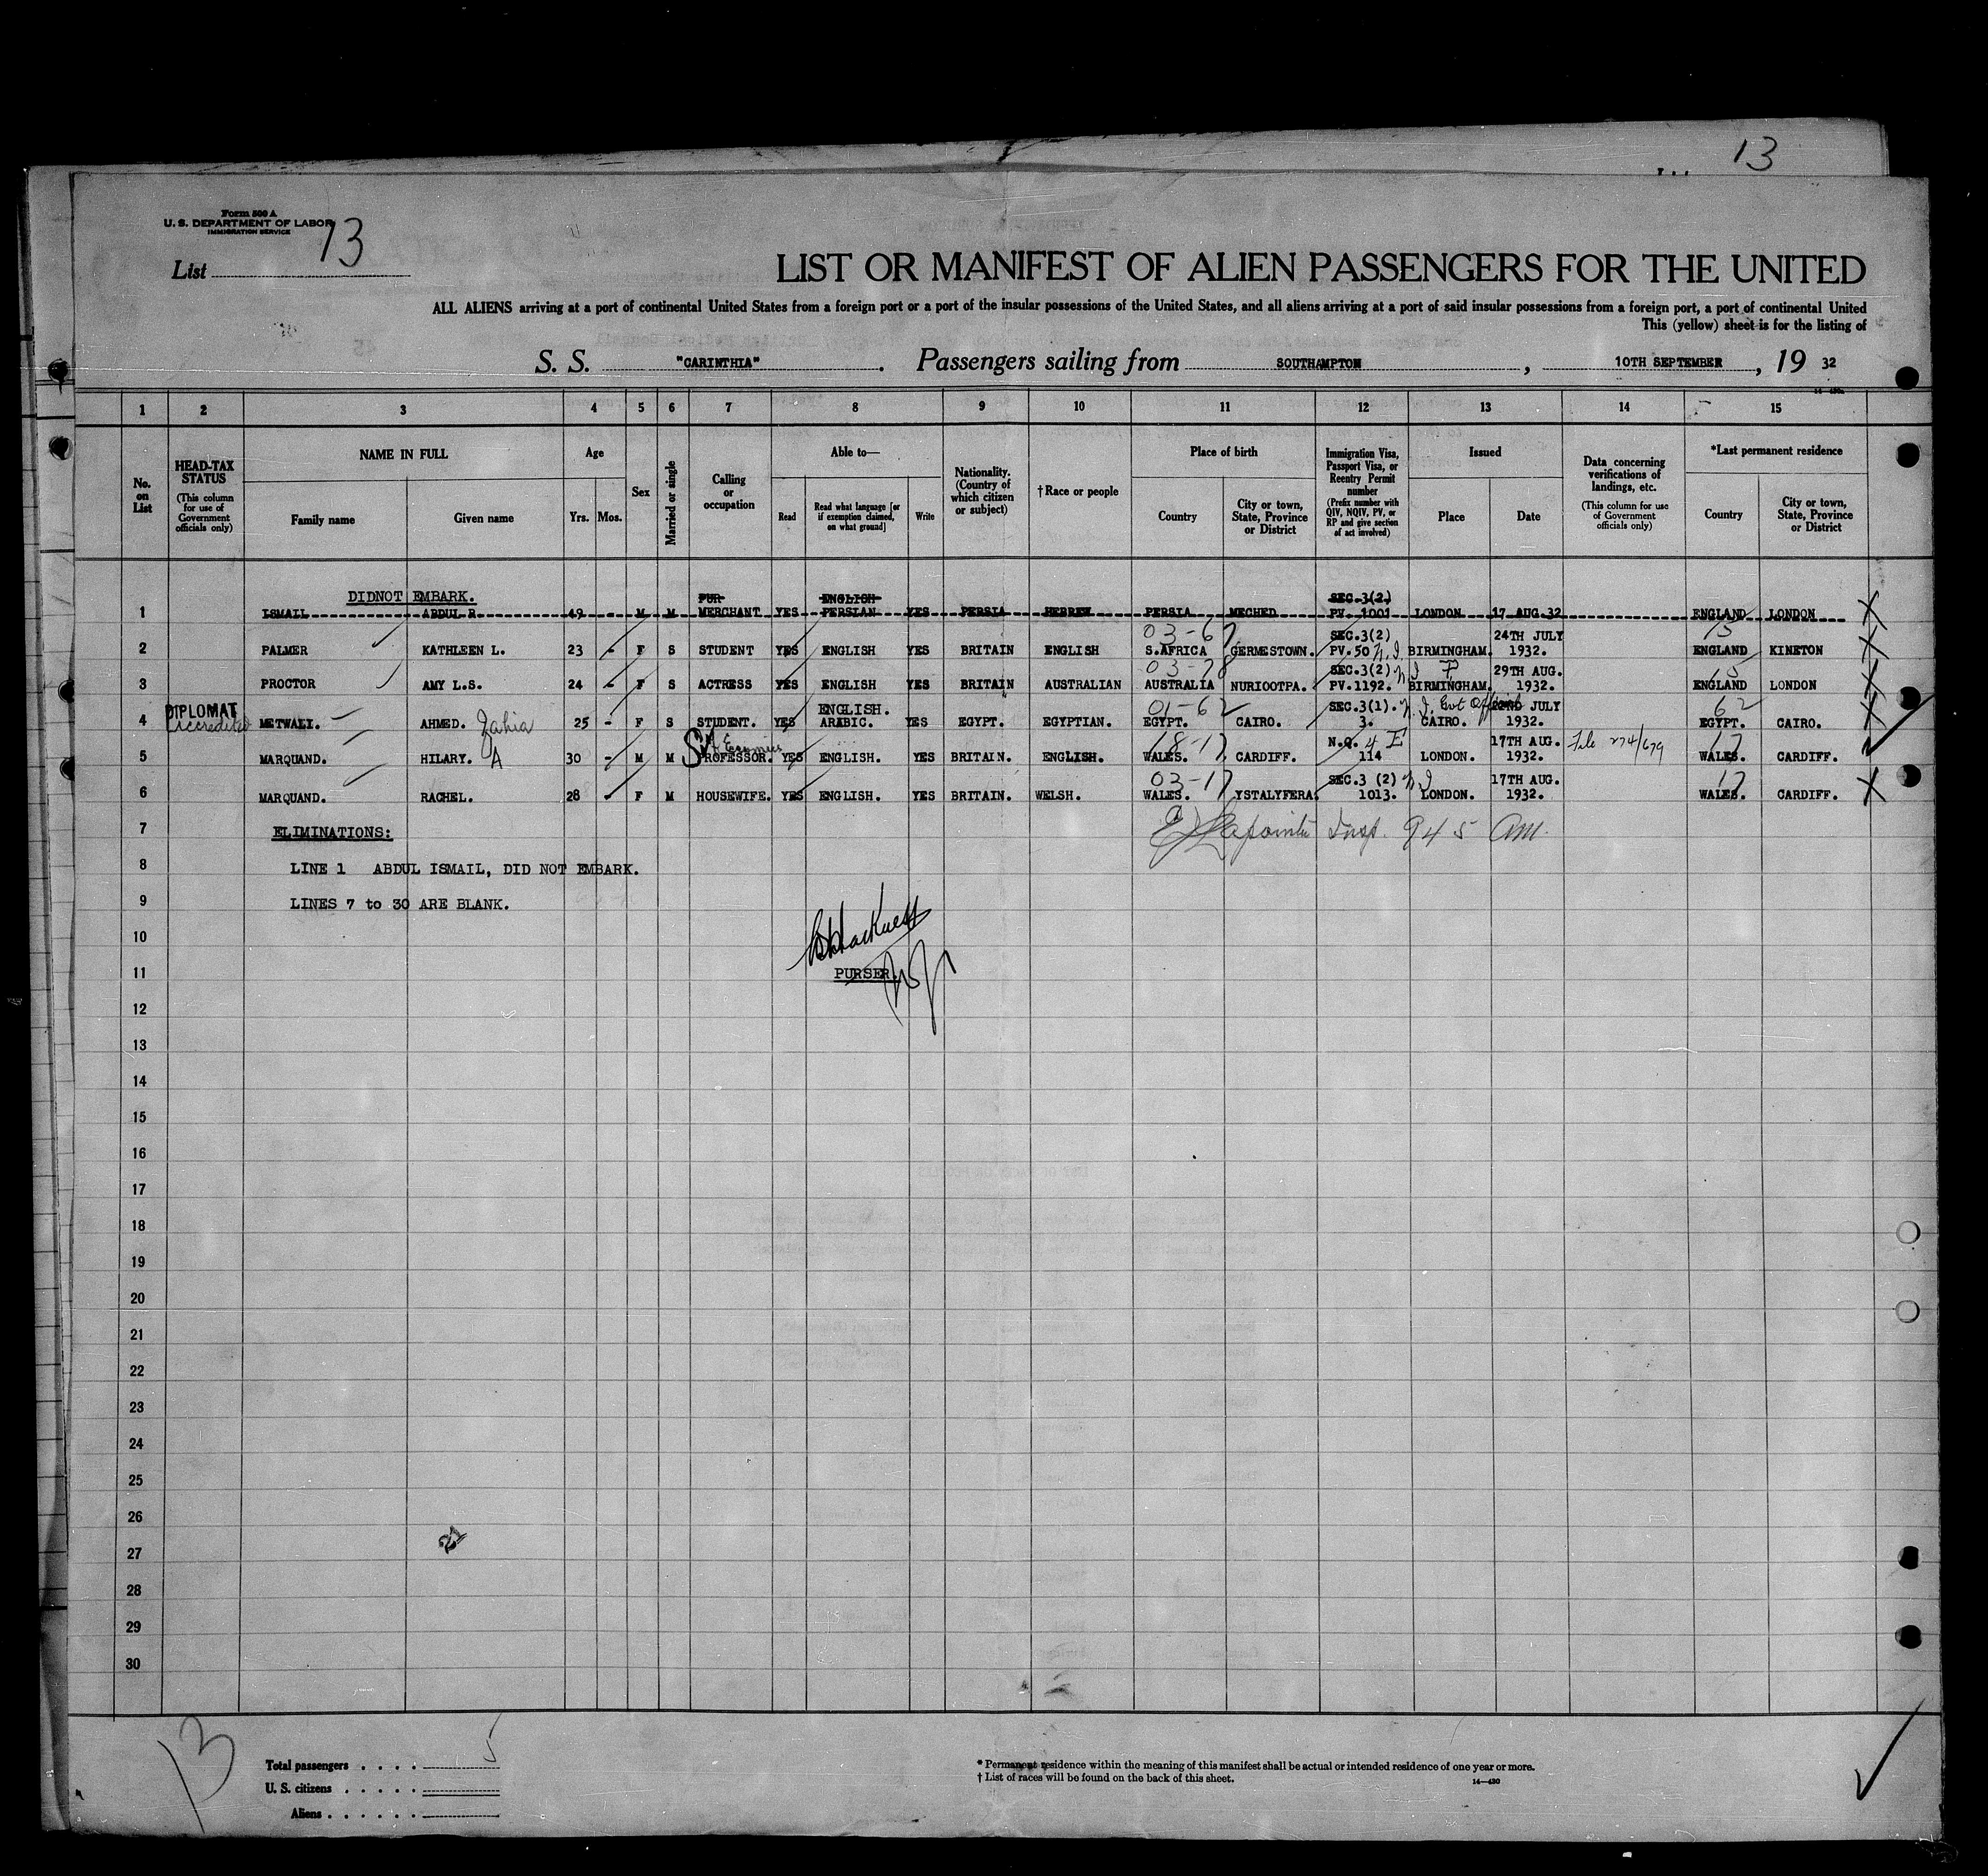 13
Form 500 A
U. S. DEPARTMENT OF LABOR
IMMIGRATION SERVICE
List 13
LIST OR MANIFEST OF ALIEN PASSENGERS FOR THE UNITED
ALL ALIENS arriving at a port of continental United States from a foreign port or a port of the insular possessions of the United States, and all aliens arriving at a port of said insular possessions from a foreign port, a port of continental United
This (yellow) sheet is for the listing of
S. S. "CARINTHIA". Passengers sailing from SOUTHAMPTON, 10TH SEPTEMBER, 19 32
1 2 3 4 5 6 7 8 9 10 11 12 13 14 15
No. on List
HEAD-TAX STATUS (This column for use of Government officials only)
NAME IN FULL Family name Given name
Age Yrs. Mos.
Sex
Married or single
Calling or occupation
Able to— Read Read what language [or if exemption claimed, on what ground] Write
Nationality. (Country of which citizen or subject)
†Race or people
Place of birth Country City or town, State, Province or District
Immigration Visa, Passport Visa, or Reentry Permit number (Prefix number with QIV, NQIV, PV, or RP and give section of act involved)
Issued Place Date
Data concerning verifications of landings, etc. (This column for use of Government officials only)
*Last permanent residence Country City or town, State, Province or District
DIDNOT EMBARK. FUR ENGLISH SEC.3(2)
1 ISMAIL ABDUL R 49 - M M MERCHANT YES PERSIAN YES PERSIA HEBREW PERSIA MECHED PV. 1001 LONDON 17 AUG.32 ENGLAND LONDON X
03-67 SEC.3(2) 24TH JULY 15
2 PALMER KATHLEEN L. 23 - F S STUDENT YES ENGLISH YES BRITAIN ENGLISH S.AFRICA GERMESTOWN. PV.50 N.I. BIRMINGHAM. 1932. ENGLAND KINETON X
03-78 SEC.3(2) N I P 29TH AUG. 15
3 PROCTOR AMY L.S. 24 - F S ACTRESS YES ENGLISH YES BRITAIN AUSTRALIAN AUSTRALIA NURIOOTPA. PV.1192. BIRMINGHAM. 1932. ENGLAND LONDON X
DIPLOMAT ENGLISH. 01-62 SEC.3(1). N.I. Govt Official 22ND JULY 62
4 Accredited METWALI. AHMED. Zahia 25 - F S STUDENT. YES ARABIC. YES EGYPT. EGYPTIAN. EGYPT. CAIRO. 3. CAIRO. 1932. EGYPT. CAIRO. X
18-17 N.Q. 4 E 17TH AUG. File 274/679 17
5 MARQUAND. HILARY. A 30 - M M PROFESSOR. YES ENGLISH. YES BRITAIN. ENGLISH. WALES. CARDIFF. 114 LONDON. 1932. WALES. CARDIFF.
03-17 SEC.3 (2) N I 17TH AUG. 17
6 MARQUAND. RACHEL. 28 - F M HOUSEWIFE. YES ENGLISH. YES BRITAIN. WELSH. WALES. YSTALYFERA. 1013. LONDON. 1932. WALES. CARDIFF. X
7 ELIMINATIONS: Lapointe Insp. 945 am.
8 LINE 1 ABDUL ISMAIL, DID NOT EMBARK.
9 LINES 7 to 30 ARE BLANK.
10
11 PURSER.
12
13
14
15
16
17
18
19
20
21
22
23
24
25
26
21
27
28
29
30
13
Total passengers . . . . 5
U. S. citizens . . . . .
Aliens . . . . . .
* Permanent residence within the meaning of this manifest shall be actual or intended residence of one year or more.
† List of races will be found on the back of this sheet.
14—430